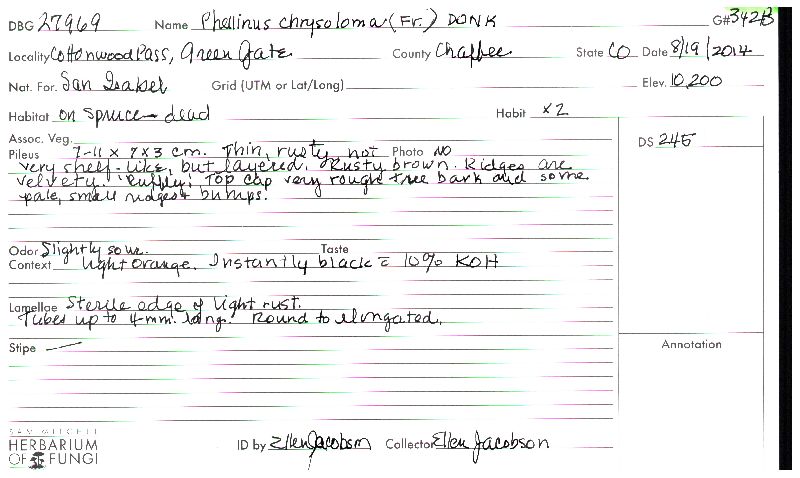 DBG 27969 Name Phellinus chrysoloma (Fr.) DONK G# 3428
Locality Cottonwood Pass, Green Gate County Chaffee State CO Date 8/19/2014
Nat. For. San Isabel Grid (UTM or Lat/Long) Elev. 10,200
Habitat on spruce - dead Habit x2
Assoc. Veg.
DS 245
Pileus 7-11 x 7 x 3 cm. Thin, rusty, not Photo NO
very shelf-like, but layered. Rusty brown. Ridges are
velvety. "Ruffly". Top cap very rough tree bark and some
pale, small ridges & bumps.
Odor Slightly sour. Taste
Context light orange. Instantly black = 10% KOH
Lamellae Sterile edge of light rust.
Tubes up to 4 mm. long. Round to elongated.
Stipe —
Annotation
SAM MITCHEL
HERBARIUM
OF FUNGI
ID by Ellen Jacobson Collector Ellen Jacobson